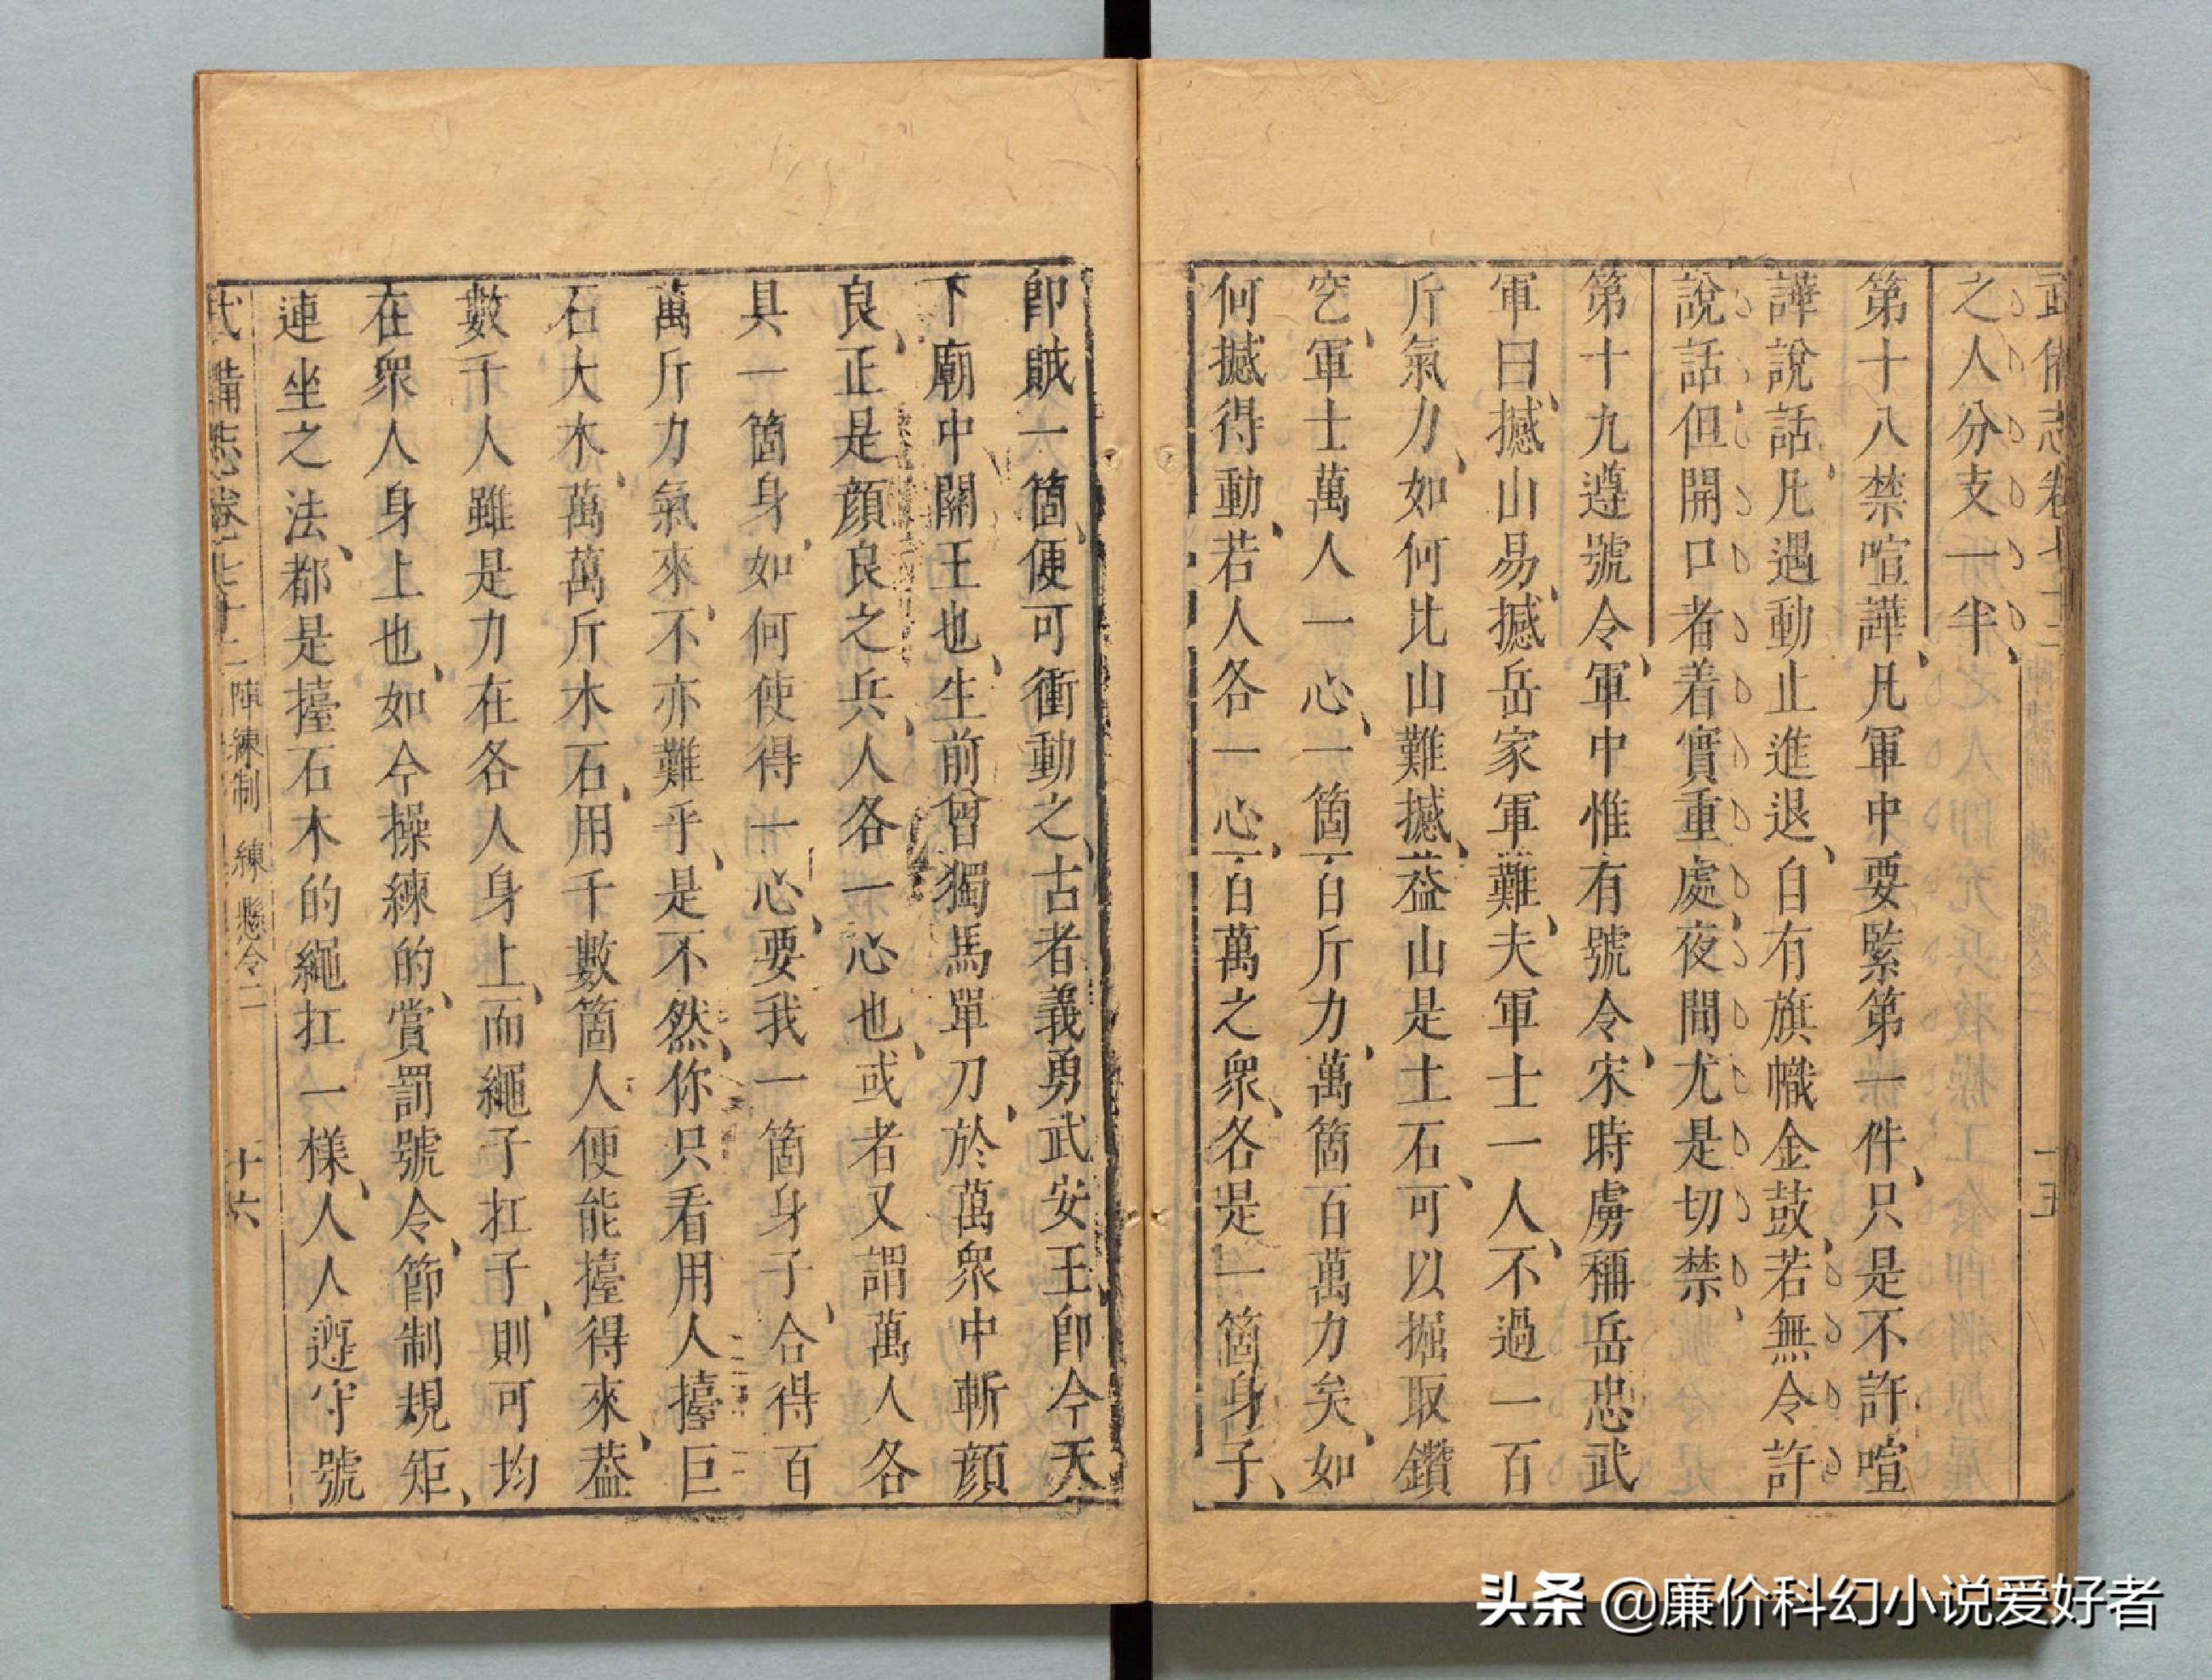 武備志卷七十二 陣練制 練 懸令二 十五
之人分支一半
第十八禁喧譁凡軍中要緊第一件只是不許喧
譁說話凡遇動止進退自有旗幟金鼓若無令許
說話但開口者着實重處夜間尤是切禁
第十九遵號令軍中惟有號令宋時虜稱岳忠武
軍曰撼山易撼岳家軍難夫軍士一人不過一百
斤氣力如何比山難撼葢山是土石可以掘取鑽
空軍士萬人一心一箇百斤力萬箇百萬力矣如
何撼得動若人各一心百萬之衆各是一箇身子
卽賊一箇便可衝動之古者義勇武安王卽今天
下廟中關王也生前曾獨馬單刀於萬衆中斬顔
良正是顔良之兵人各一心也或者又謂萬人各
具一箇身如何使得一心要我一箇身子合得百
萬斤力氣來不亦難乎是不然你只看用人擡巨
石大木萬萬斤木石用千數箇人便能擡得來葢
數千人雖是力在各人身上而繩子扛子則可均
在衆人身上也如今操練的賞罰號令節制規矩
連坐之法都是擡石木的繩扛一樣人人遵守號
武備志卷七十二 陣練制 練 懸令二 十六
头条 @廉价科幻小说爱好者